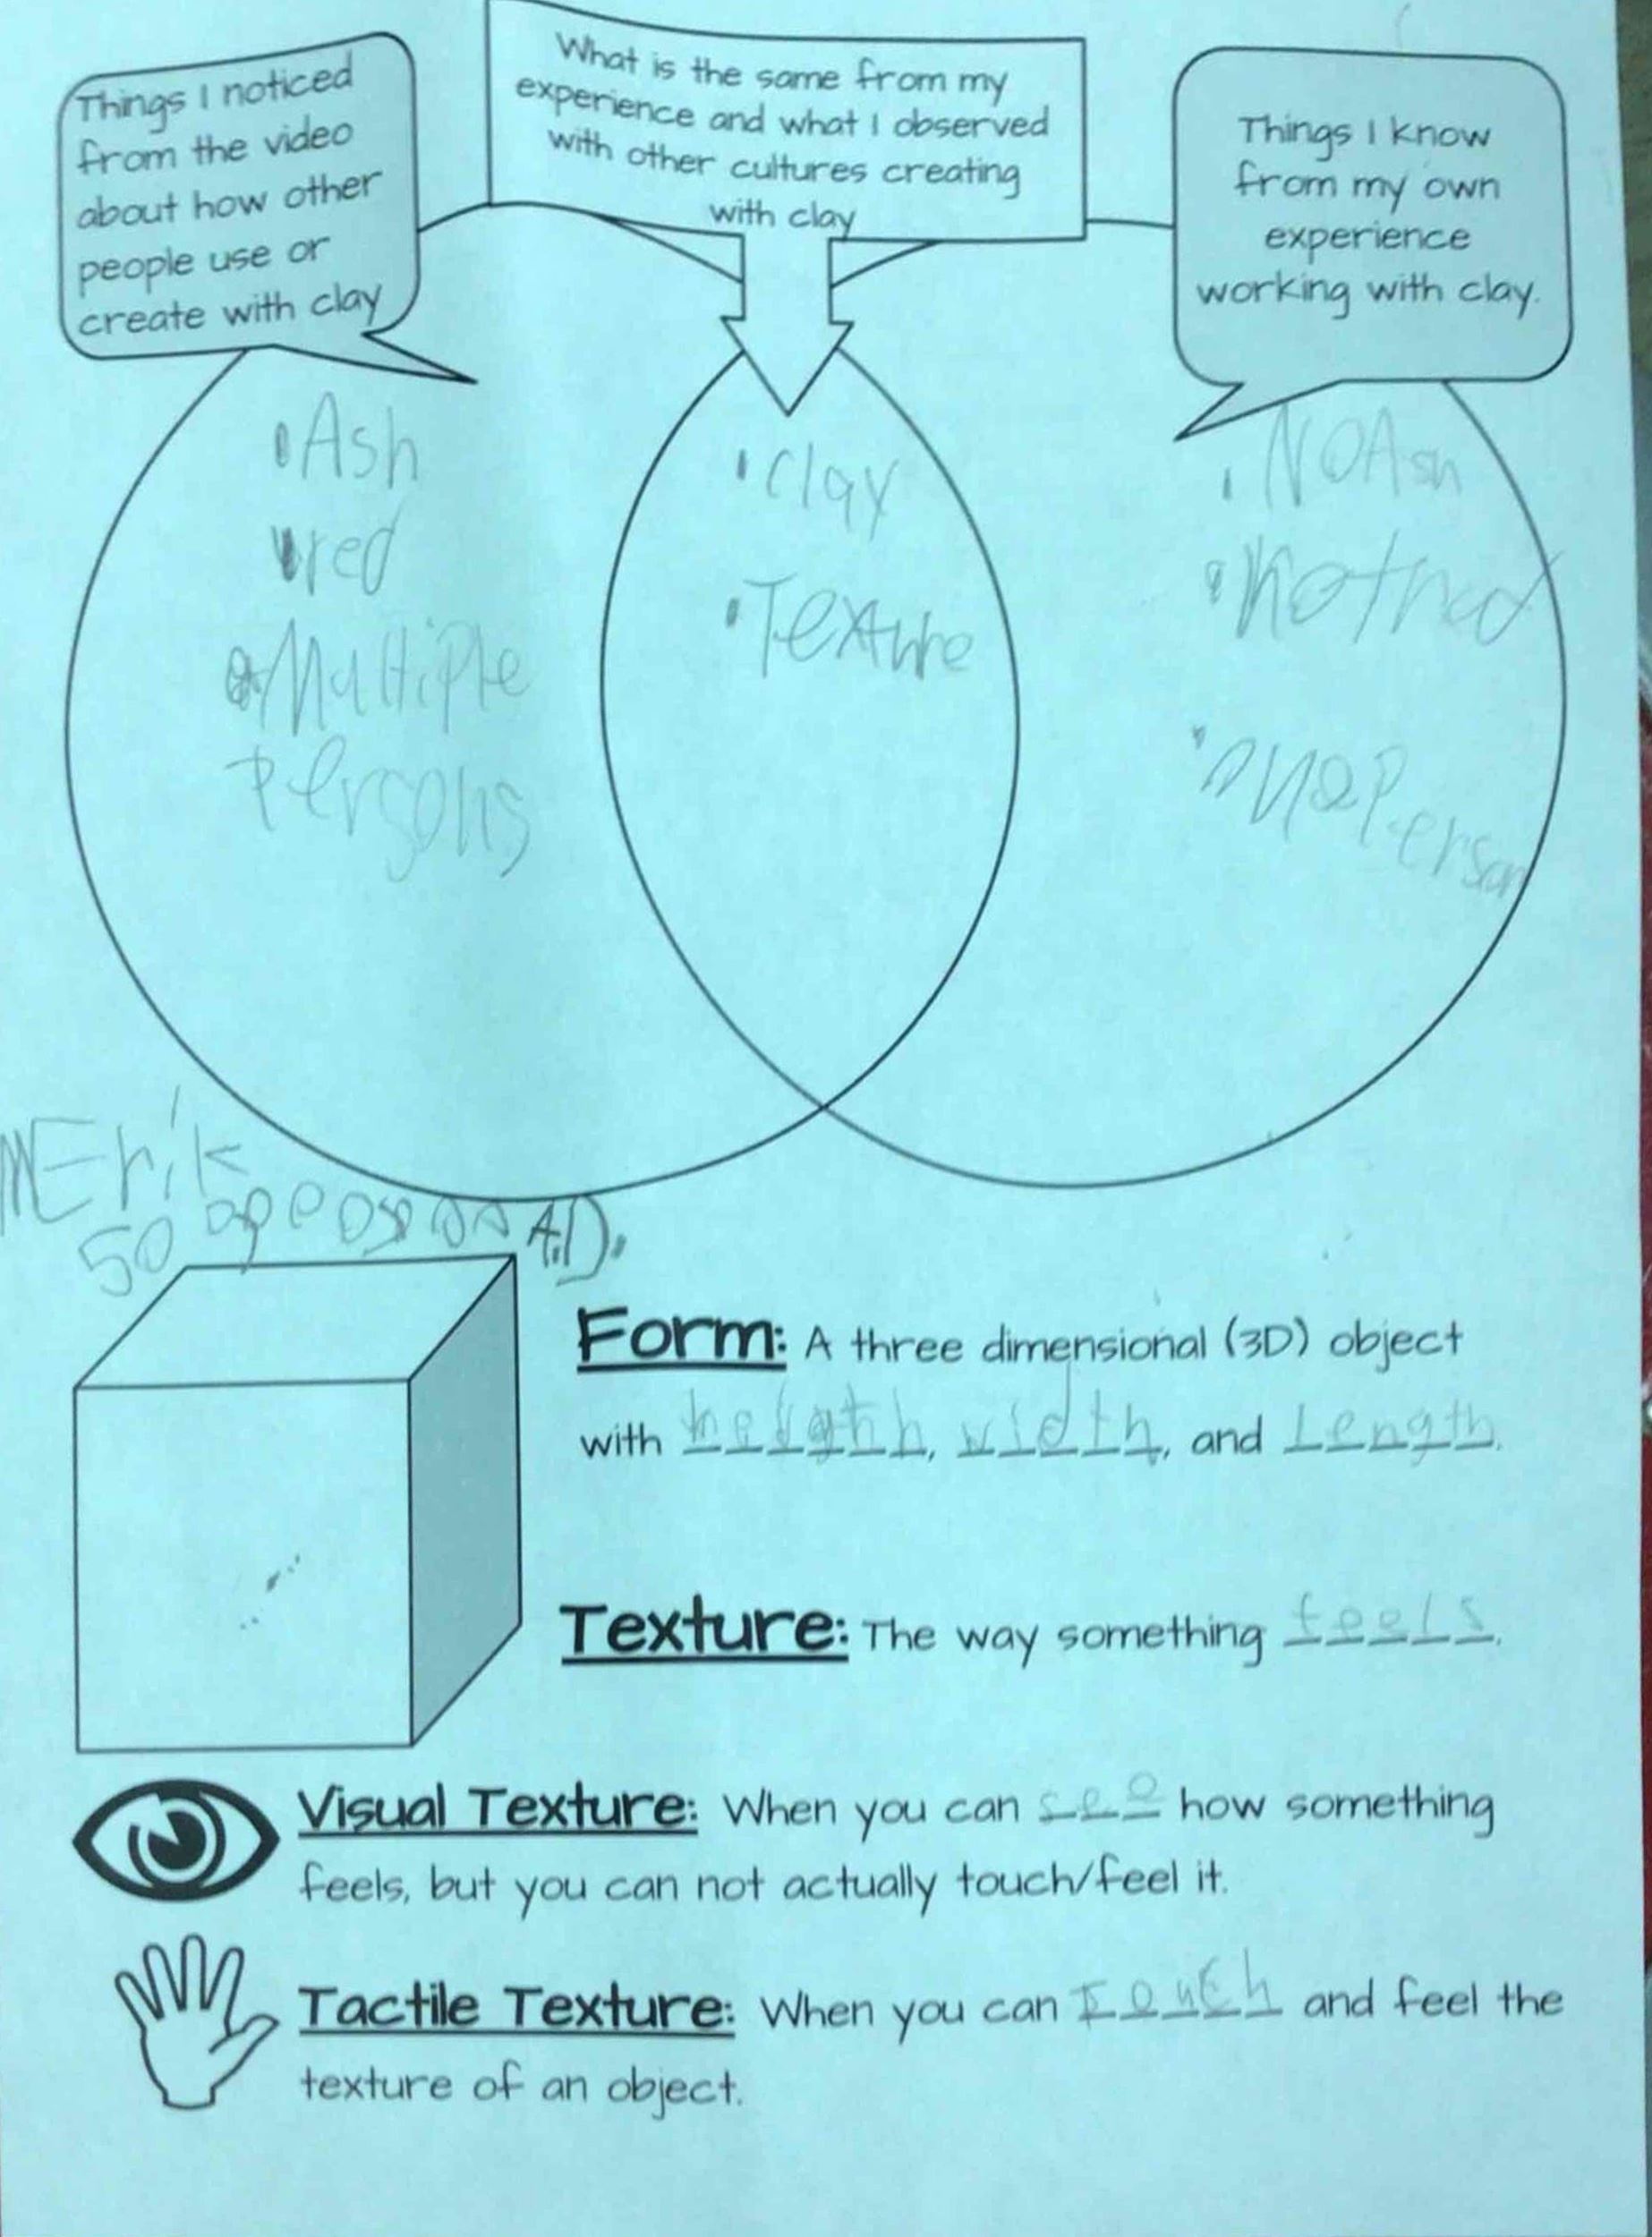 Things I noticed
from the video
about how other
people use or
create with clay
What is the same from my
experience and what I observed
with other cultures creating
with clay
Things I know
from my own
experience
working with clay.
Ash
red
Multiple
Persons
Clay
Texture
NO Ash
Not red
one Person
Erik
50
A.D.
Form: A three dimensional (3D) object
with heigthh, width, and Length.
Texture: The way something feels.
Visual Texture: When you can see how something
feels, but you can not actually touch/feel it.
Tactile Texture: When you can touch and feel the
texture of an object.